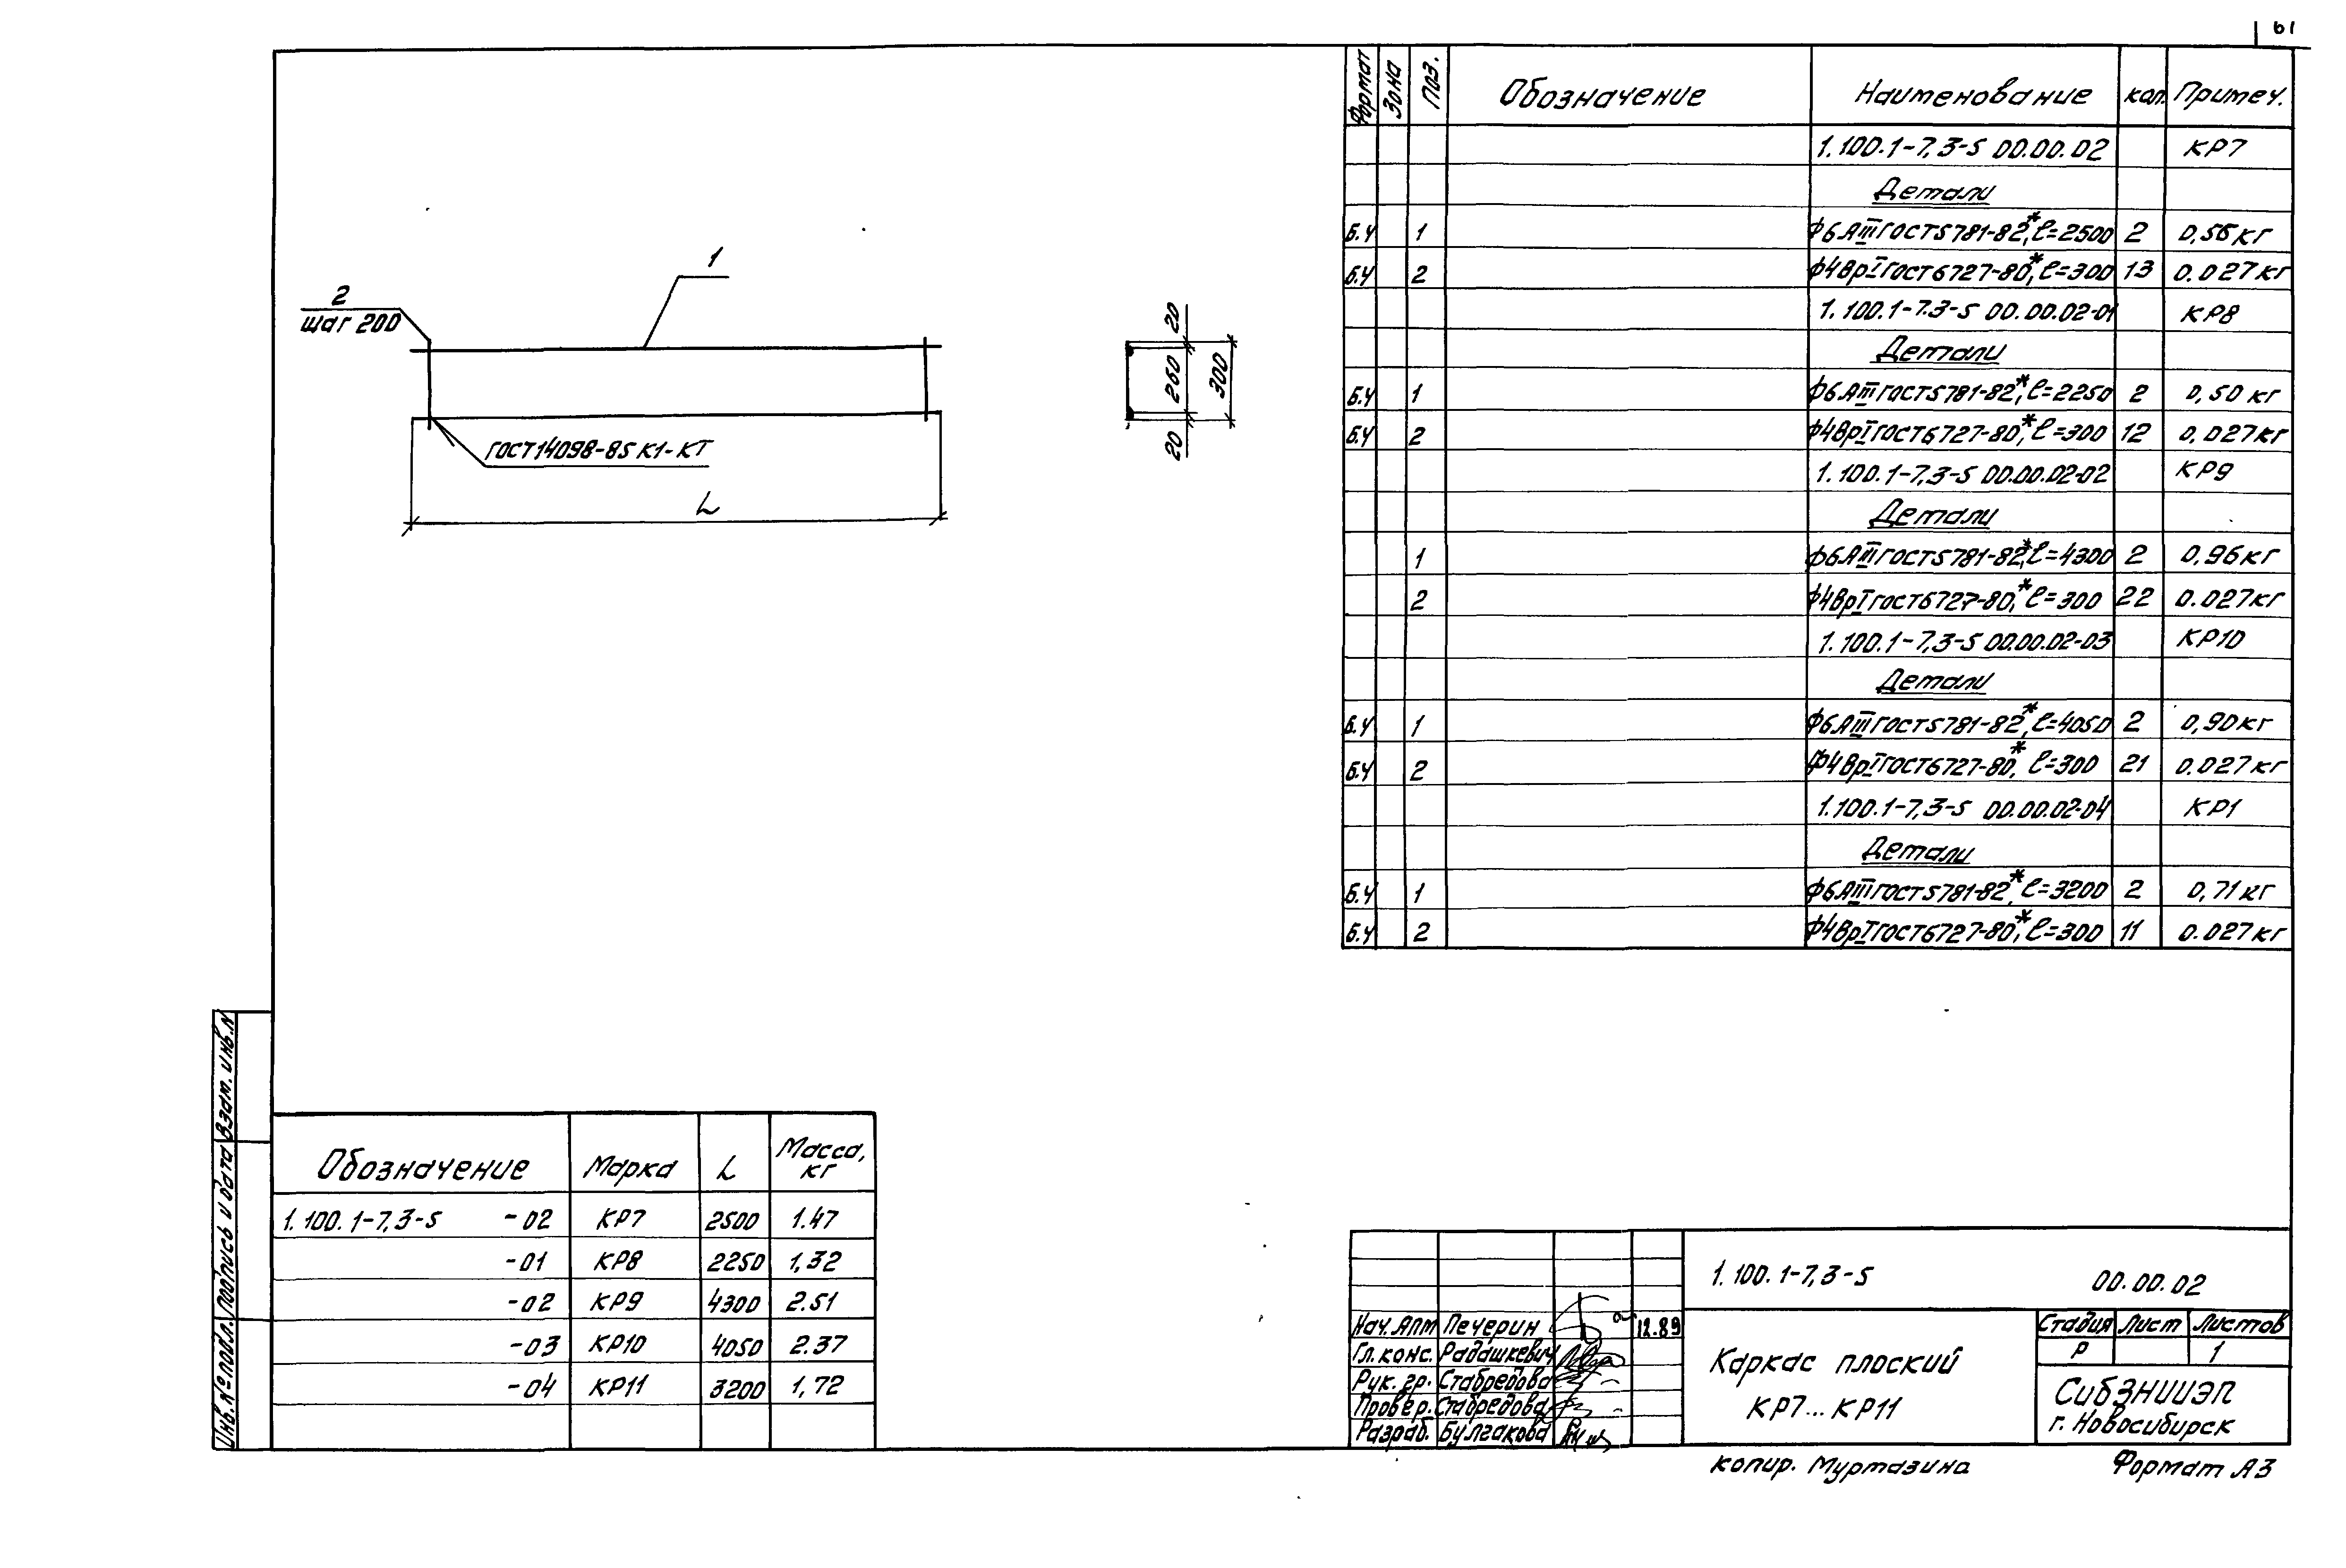 61
Формат Зона Поз. Обозначение Наименование кол. Примеч.
1.100.1-7,3-5 00.00.02 КР7
Детали
Б.Ч 1 Ф6АIII ГОСТ5781-82*, ℓ=2500 2 0,56кг
Б.Ч 2 Ф4ВрI ГОСТ6727-80*, ℓ=300 13 0.027кг
1.100.1-7.3-5 00.00.02-01 КР8
Детали
Б.Ч 1 Ф6АIII ГОСТ5781-82*, ℓ=2250 2 0,50 кг
Б.Ч 2 Ф4ВрI ГОСТ6727-80*, ℓ=300 12 0,027кг
1.100.1-7,3-5 00.00.02-02 КР9
Детали
1 Ф6АIII ГОСТ5781-82*, ℓ=4300 2 0,96кг
2 Ф4ВрI ГОСТ6727-80*, ℓ=300 22 0.027кг
1.100.1-7,3-5 00.00.02-03 КР10
Детали
Б.Ч 1 Ф6АIII ГОСТ5781-82*, ℓ=4050 2 0,90кг
Б.Ч 2 Ф4ВрI ГОСТ6727-80*, ℓ=300 21 0.027кг
1.100.1-7,3-5 00.00.02-04 КР1
Детали
Б.Ч 1 Ф6АIII ГОСТ5781-82* ℓ=3200 2 0,71кг
Б.Ч 2 Ф4ВрI ГОСТ6727-80*, ℓ=300 11 0.027кг
1
2
шаг 200
ГОСТ14098-85 К1-КТ
L
20
260
300
20
Обозначение Марка L Масса, кг
1.100.1-7,3-5 -02 КР7 2500 1.47
-01 КР8 2250 1,32
-02 КР9 4300 2.51
-03 КР10 4050 2.37
-04 КР11 3200 1,72
Взам. инв.N
Подпись и дата
Инв.№ подл.
1.100.1-7,3-5 00.00.02
Нач.АПМ Печерин 12.89
Гл.конс. Радашкевич
Рук.гр. Стабредова
Провер. Стабредова
Разраб. Булгакова
Каркас плоский
КР7...КР11
Стадия Лист Листов
Р 1
СибЗНИИЭП
г. Новосибирск
копир. Муртазина
Формат А3